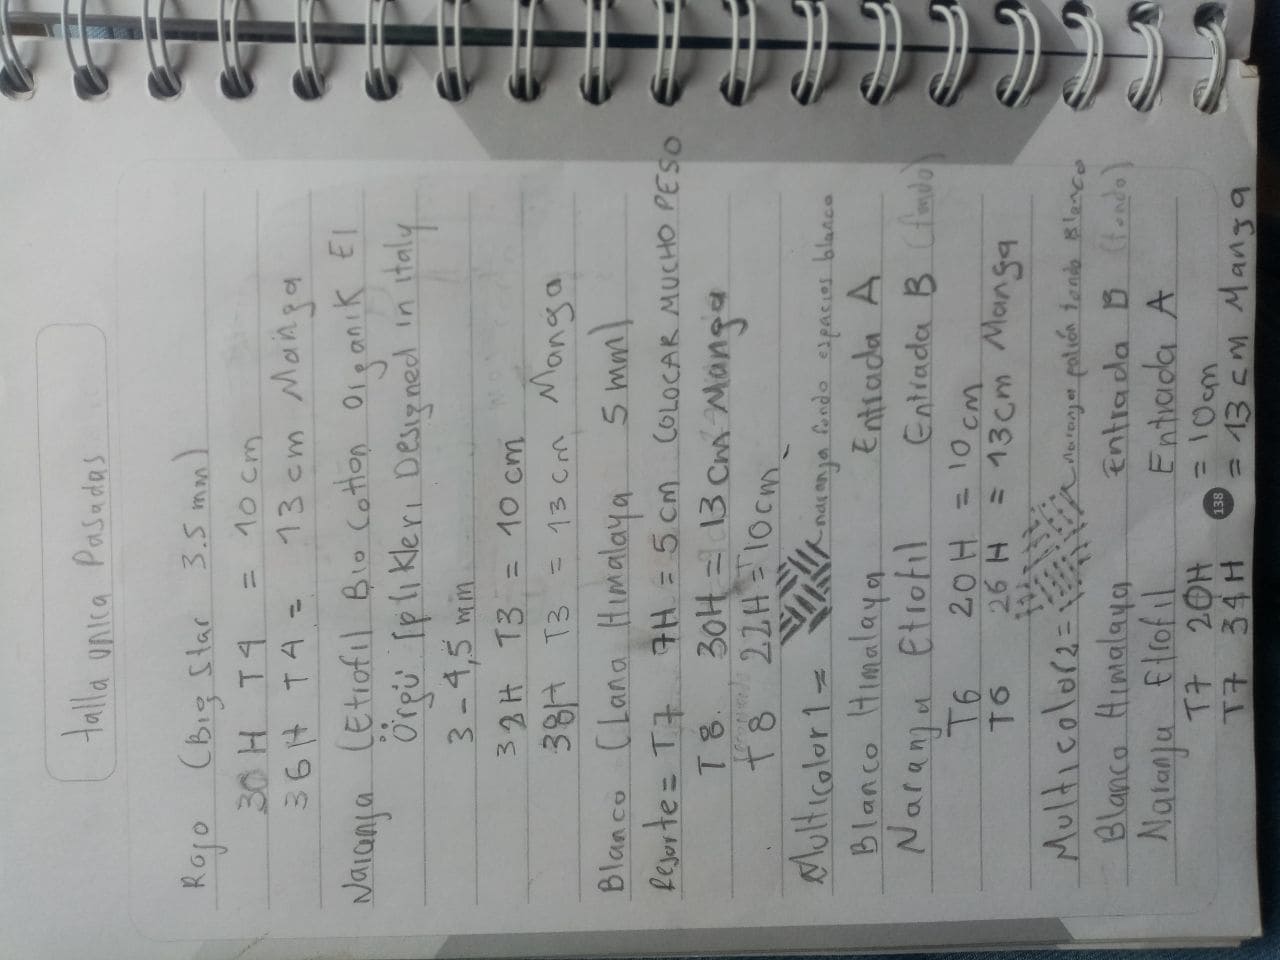 talla unica Pasadas
Rojo (Big Star 3.5 mm)
30 H T4 = 10 cm
36 H T4 = 13 cm Manga
Naranja (Etrofil Bio Cotton Organik El
Örgü İplikleri Designed in Italy
3 - 4,5 mm
32H T3 = 10 cm
38H T3 = 13 cm Manga
Blanco (Lana Himalaya 5 mm)
Resorte = T7 7H = 5 cm COLOCAR MUCHO PESO
T8. 30H = 13 cm Manga
T8 22H = 10 cm
Multicolor 1 = naranja fondo espacios blanco
Blanco Himalaya Entrada A
Naranja Etrofil Entrada B (fondo)
T6 20H = 10 cm
T6 26 H = 13 cm Manga
Multicolor 2 = naranja patrón fondo Blanco
Blanco Himalaya Entrada B (fondo)
Naranja Etrofil Entrada A
T7 20H = 10cm
138
T7 34 H = 13 cm Manga